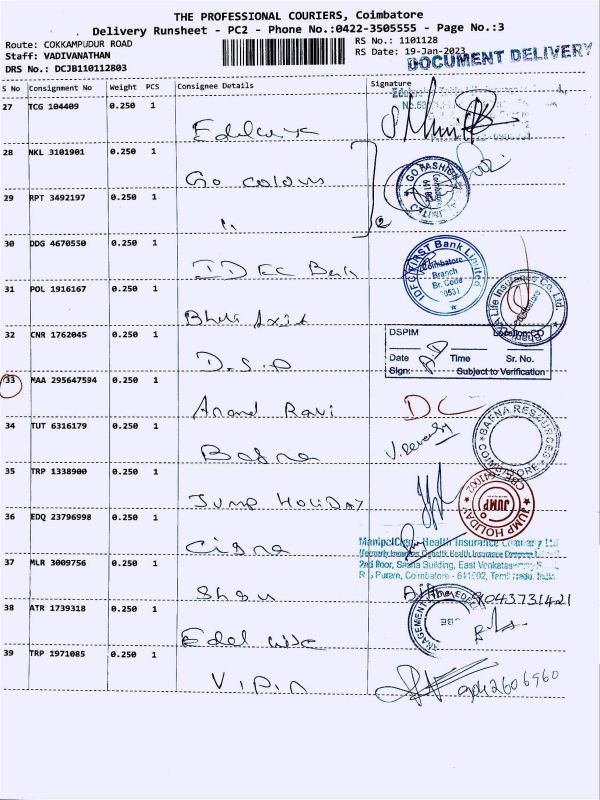 THE PROFESSIONAL COURIERS, Coimbatore
Delivery Runsheet - PC2 - Phone No.:0422-3505555 - Page No.:3
Route: COKKAMPUDUR ROAD
RS No.: 1101128
Staff: VADIVANATHAN
RS Date: 19-Jan-2023
DRS No.: DCJB110112803
DOCUMENT DELIVERY
S No Consignment No Weight PCS Consignee Details Signature
27 TCG 104409 0.250 1
28 NKL 3101901 0.250 1
Go colours
GO FASHION
29 RPT 3492197 0.250 1
"
2
30 DDG 4670550 0.250 1
IDFC Bank
IDFC FIRST Bank Limited
Coimbatore
Branch
Br. Code
31 POL 1916167 0.250 1
Bharti Axia
Life Insurance Co. Ltd.
32 CNR 1762045 0.250 1
D.S.P
DSPIM Location:CO
Date Time Sr. No.
Sign: Subject to Verification
33 MAA 295647594 0.250 1
Anand Ravi
DC
34 TUT 6316179 0.250 1
Bafna
BAFNA RESOURCES
COIMBATORE
35 TRP 1338900 0.250 1
JUMP HOLIDAY
JUMP
JUMP HOLIDAY
36 EDQ 23796998 0.250 1
Cigna
ManipalCigna Health Insurance Company Ltd
2nd floor, Sasha Building, East Venkatasamy
R S Puram, Coimbatore - 641002, Tamil Nadu, India
37 MLR 3009756 0.250 1
38 ATR 1739318 0.250 1
Edelwise
39 TRP 1971085 0.250 1
Vipin